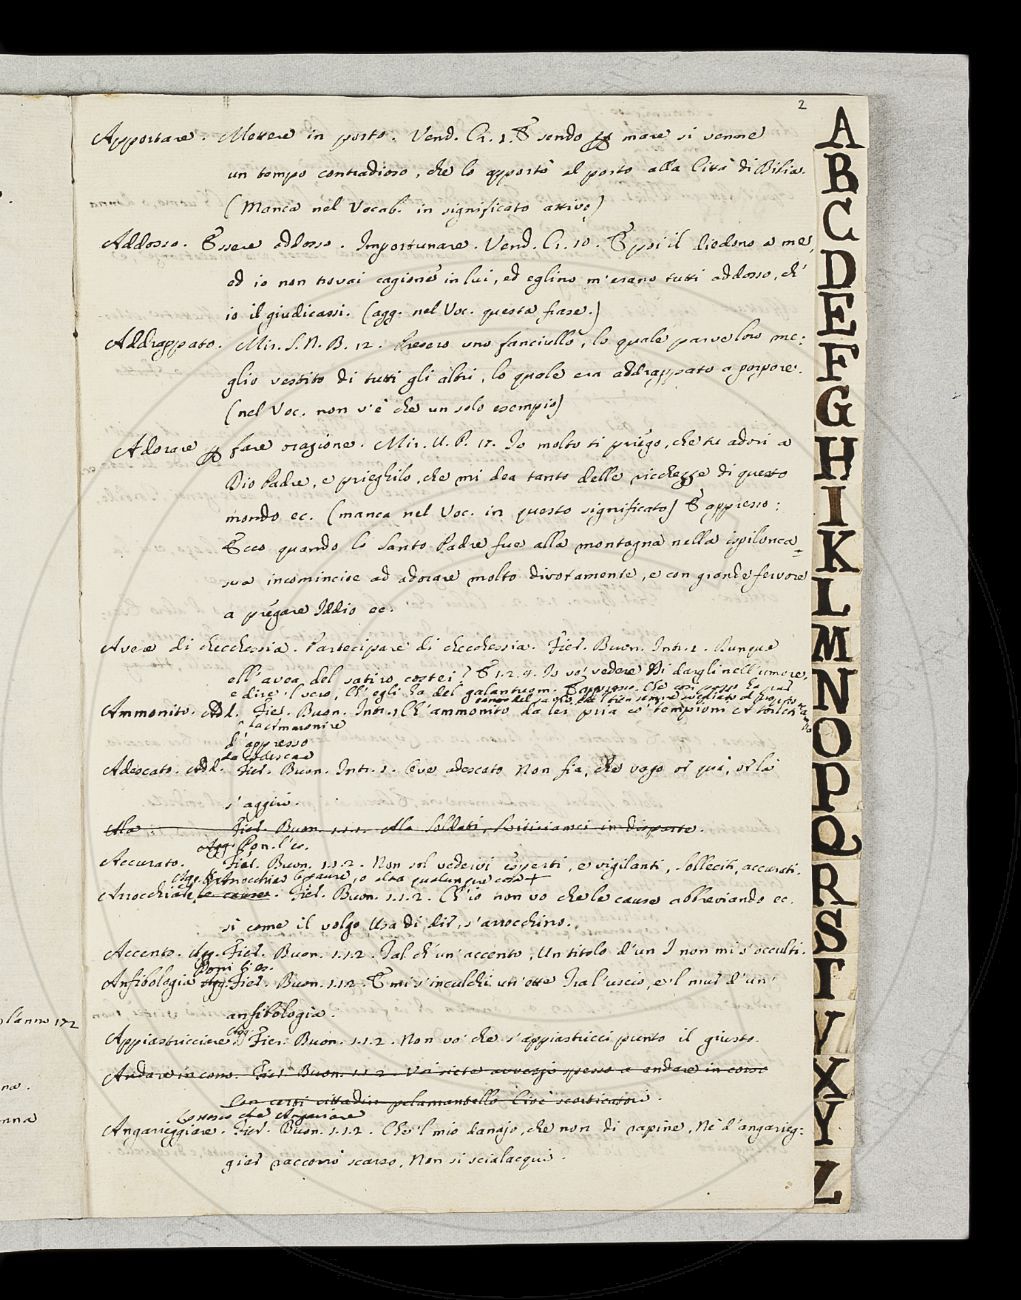 2
Apportare. Mettere in porto. Vend. Cr. 1. E sendo mare si venne
un tempo contradioso, che lo apportò al porto alla Città di
(Manca nel Vocab. in significato attivo)
Addosso. Essere addosso. Importunare. Vend. Cr. 10. E poi il diedono a me,
ed io non trovai cagione in lui, ed eglino m'erano tutti addosso, ch'
io il giudicassi. (agg. nel Voc. questa frase.)
Addrappato. Mir. S. N. B. 12. Presero uno fanciullo, lo quale parve loro me:
glio vestito di tutti gli altri, lo quale era addrappato a porpore.
(nel Voc. non v'è che un solo esempio)
Adorare fare orazione. Mir. U. P. 17. Io molto ti priego, che tu adori a
Dio Padre, e prieghilo, che mi dea tanto delle ricchezze di questo
mondo ec. (manca nel Voc. in questo significato) E appresso:
Ecco quando lo Santo Padre fue alla montagna nella spilonca
sua incomincioe ad adorare molto divotamente, e con grande fervore
a pregare Iddio ec.
Avere di checchessia. Partecipare di checchessia. Fier. Buon. Intr. 2. Dunque
ell'avea del satiro costei? E 1.2.4. Io vo' vedere Di dargli nell'umore,
e dire 'l vero, Ch'egli ha del galantuom. E appresso. Che
Ammonito. Add. Fier. Buon. Intr. 1 Ch'ammonito da lei pria
da Ammonire
d'appresso
da Adescare
Adescato. Add. Fier. Buon. Intr. 1. Ove adescato Non sia, che vago or quà, or là
s'aggiri.
Ala. Fier. Buon. 1.1.1. Ala Soldati, in disparte.
Agg. Pon. l'es.
Accurato. Fier. Buon. 1.1.2. Non sol vedervi esperti, e vigilanti, Solleciti, accurati.
Agg. Arrocchiar le paure, o altra qualunque cosa +
Arrocchiare le cause. Fier. Buon. 1.1.2. Ch'io non vo che le cause abbreviando ec.
si come il volgo Usa di dir, s'arrocchino.
Accento. Agg. Fier. Buon. 1.1.2. Tal ch'un'accento, Un titolo d'un I non mi s'occulti.
Poni l'es.
Anfibologia Agg. Fier. Buon. 1.1.2. E mi s'inculchi un' Tra l'uscio, e'l mur d'un'
anfibologia.
Agg.
Appiastricciare. Fier. Buon. 1.1.2. Non vo' che s'appiastricci punto il giusto.
Andare in corso. Fier. Buon. 1.1.2. Voi siete avvezzo spesso a andare in corso
Con certi cittadin pelamantello. Cioè scorticatori.
Lo stesso che Angariare
Angarieggiare. Fier. Buon. 1.1.2. Che'l mio danajo, che non di rapine, Nè d'angarieg:
giar raccorrò scarso, Non si scialacqui.
A
B
C
D
E
F
G
H
I
K
L
M
N
O
P
Q
R
S
T
V
X
Y
Z